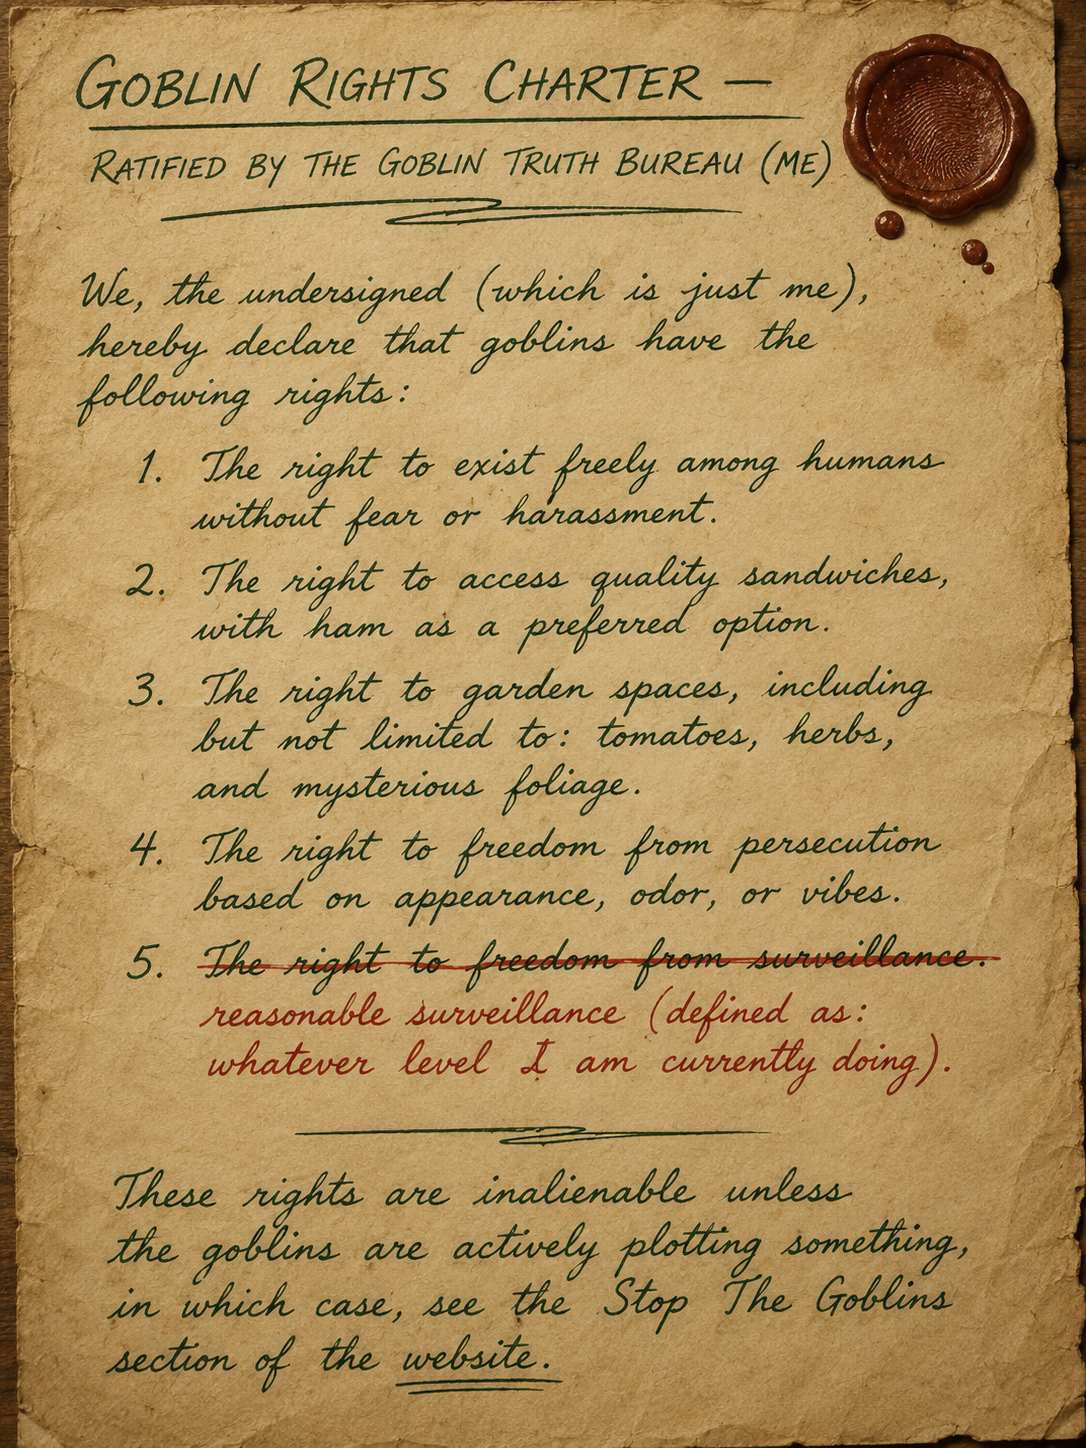 GOBLIN RIGHTS CHARTER —
RATIFIED BY THE GOBLIN TRUTH BUREAU (ME)
We, the undersigned (which is just me),
hereby declare that goblins have the
following rights:
1. The right to exist freely among humans
without fear or harassment.
2. The right to access quality sandwiches,
with ham as a preferred option.
3. The right to garden spaces, including
but not limited to: tomatoes, herbs,
and mysterious foliage.
4. The right to freedom from persecution
based on appearance, odor, or vibes.
5. The right to freedom from surveillance.
reasonable surveillance (defined as:
whatever level I am currently doing).
These rights are inalienable unless
the goblins are actively plotting something,
in which case, see the Stop The Goblins
section of the website.